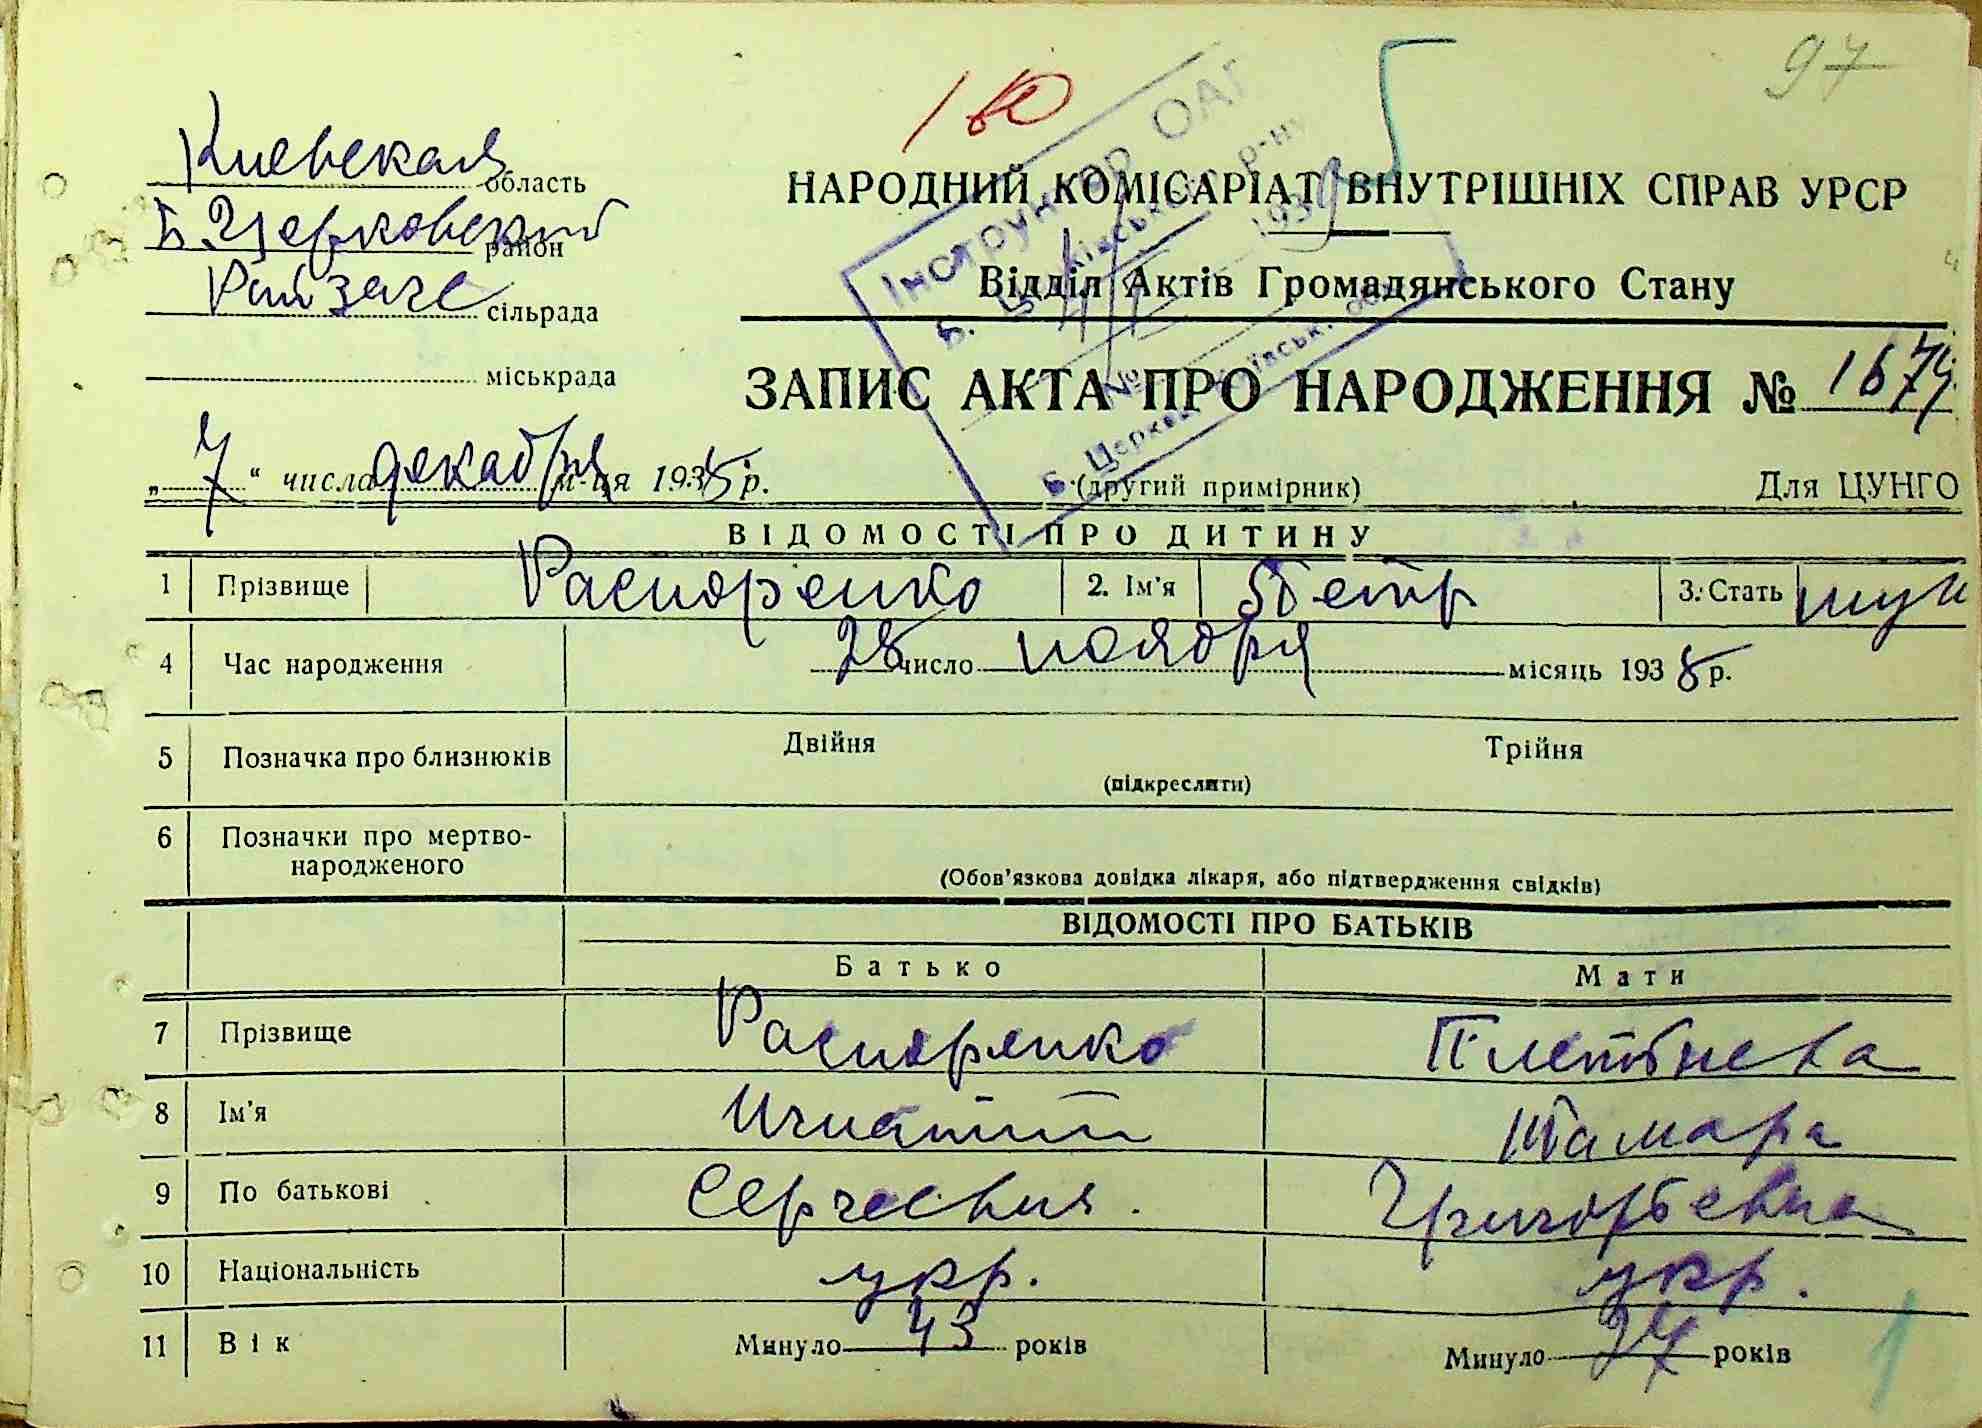 97
Киевская область
Б. Церковский район
Райзагс сільрада
міськрада
НАРОДНИЙ КОМІСАРІАТ ВНУТРІШНІХ СПРАВ УРСР
Відділ Актів Громадянського Стану
Інструктор ОАГ
1939
ЗАПИС АКТА ПРО НАРОДЖЕННЯ № 1674
„7“ числа декабря м-ця 1938 р.
(другий примірник)
Для ЦУНГО
ВІДОМОСТІ ПРО ДИТИНУ
1 Прізвище Распоренко 2. Ім'я Петр 3. Стать муж
4 Час народження 28 число ноября місяць 1938 р.
5 Позначка про близнюків Двійня Трійня
(підкреслити)
6 Позначки про мертво-
народженого
(Обов'язкова довідка лікаря, або підтвердження свідків)
ВІДОМОСТІ ПРО БАТЬКІВ
Батько Мати
7 Прізвище Распоренко Плетнева
8 Ім'я Игнатий Тамара
9 По батькові Сергеевич Григорьевна
10 Національність укр. укр.
11 Вік Минуло 43 років Минуло 27 років